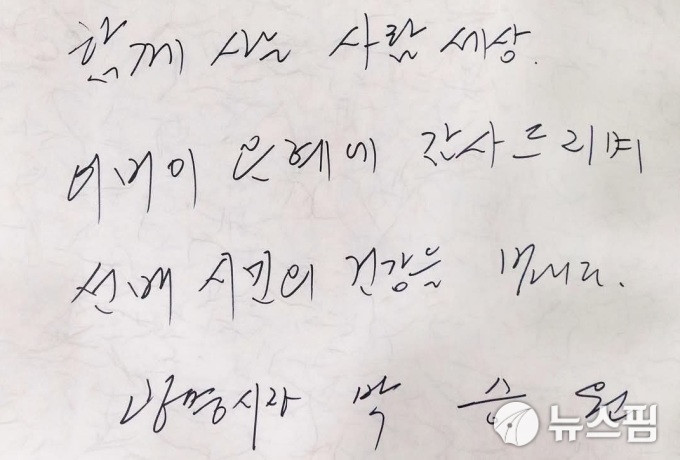 함께 사는 사람 세상.
어버이 은혜에 감사드리며
선배 시민의 건강을 빕니다.
광명시장 박 승 원
뉴스핌